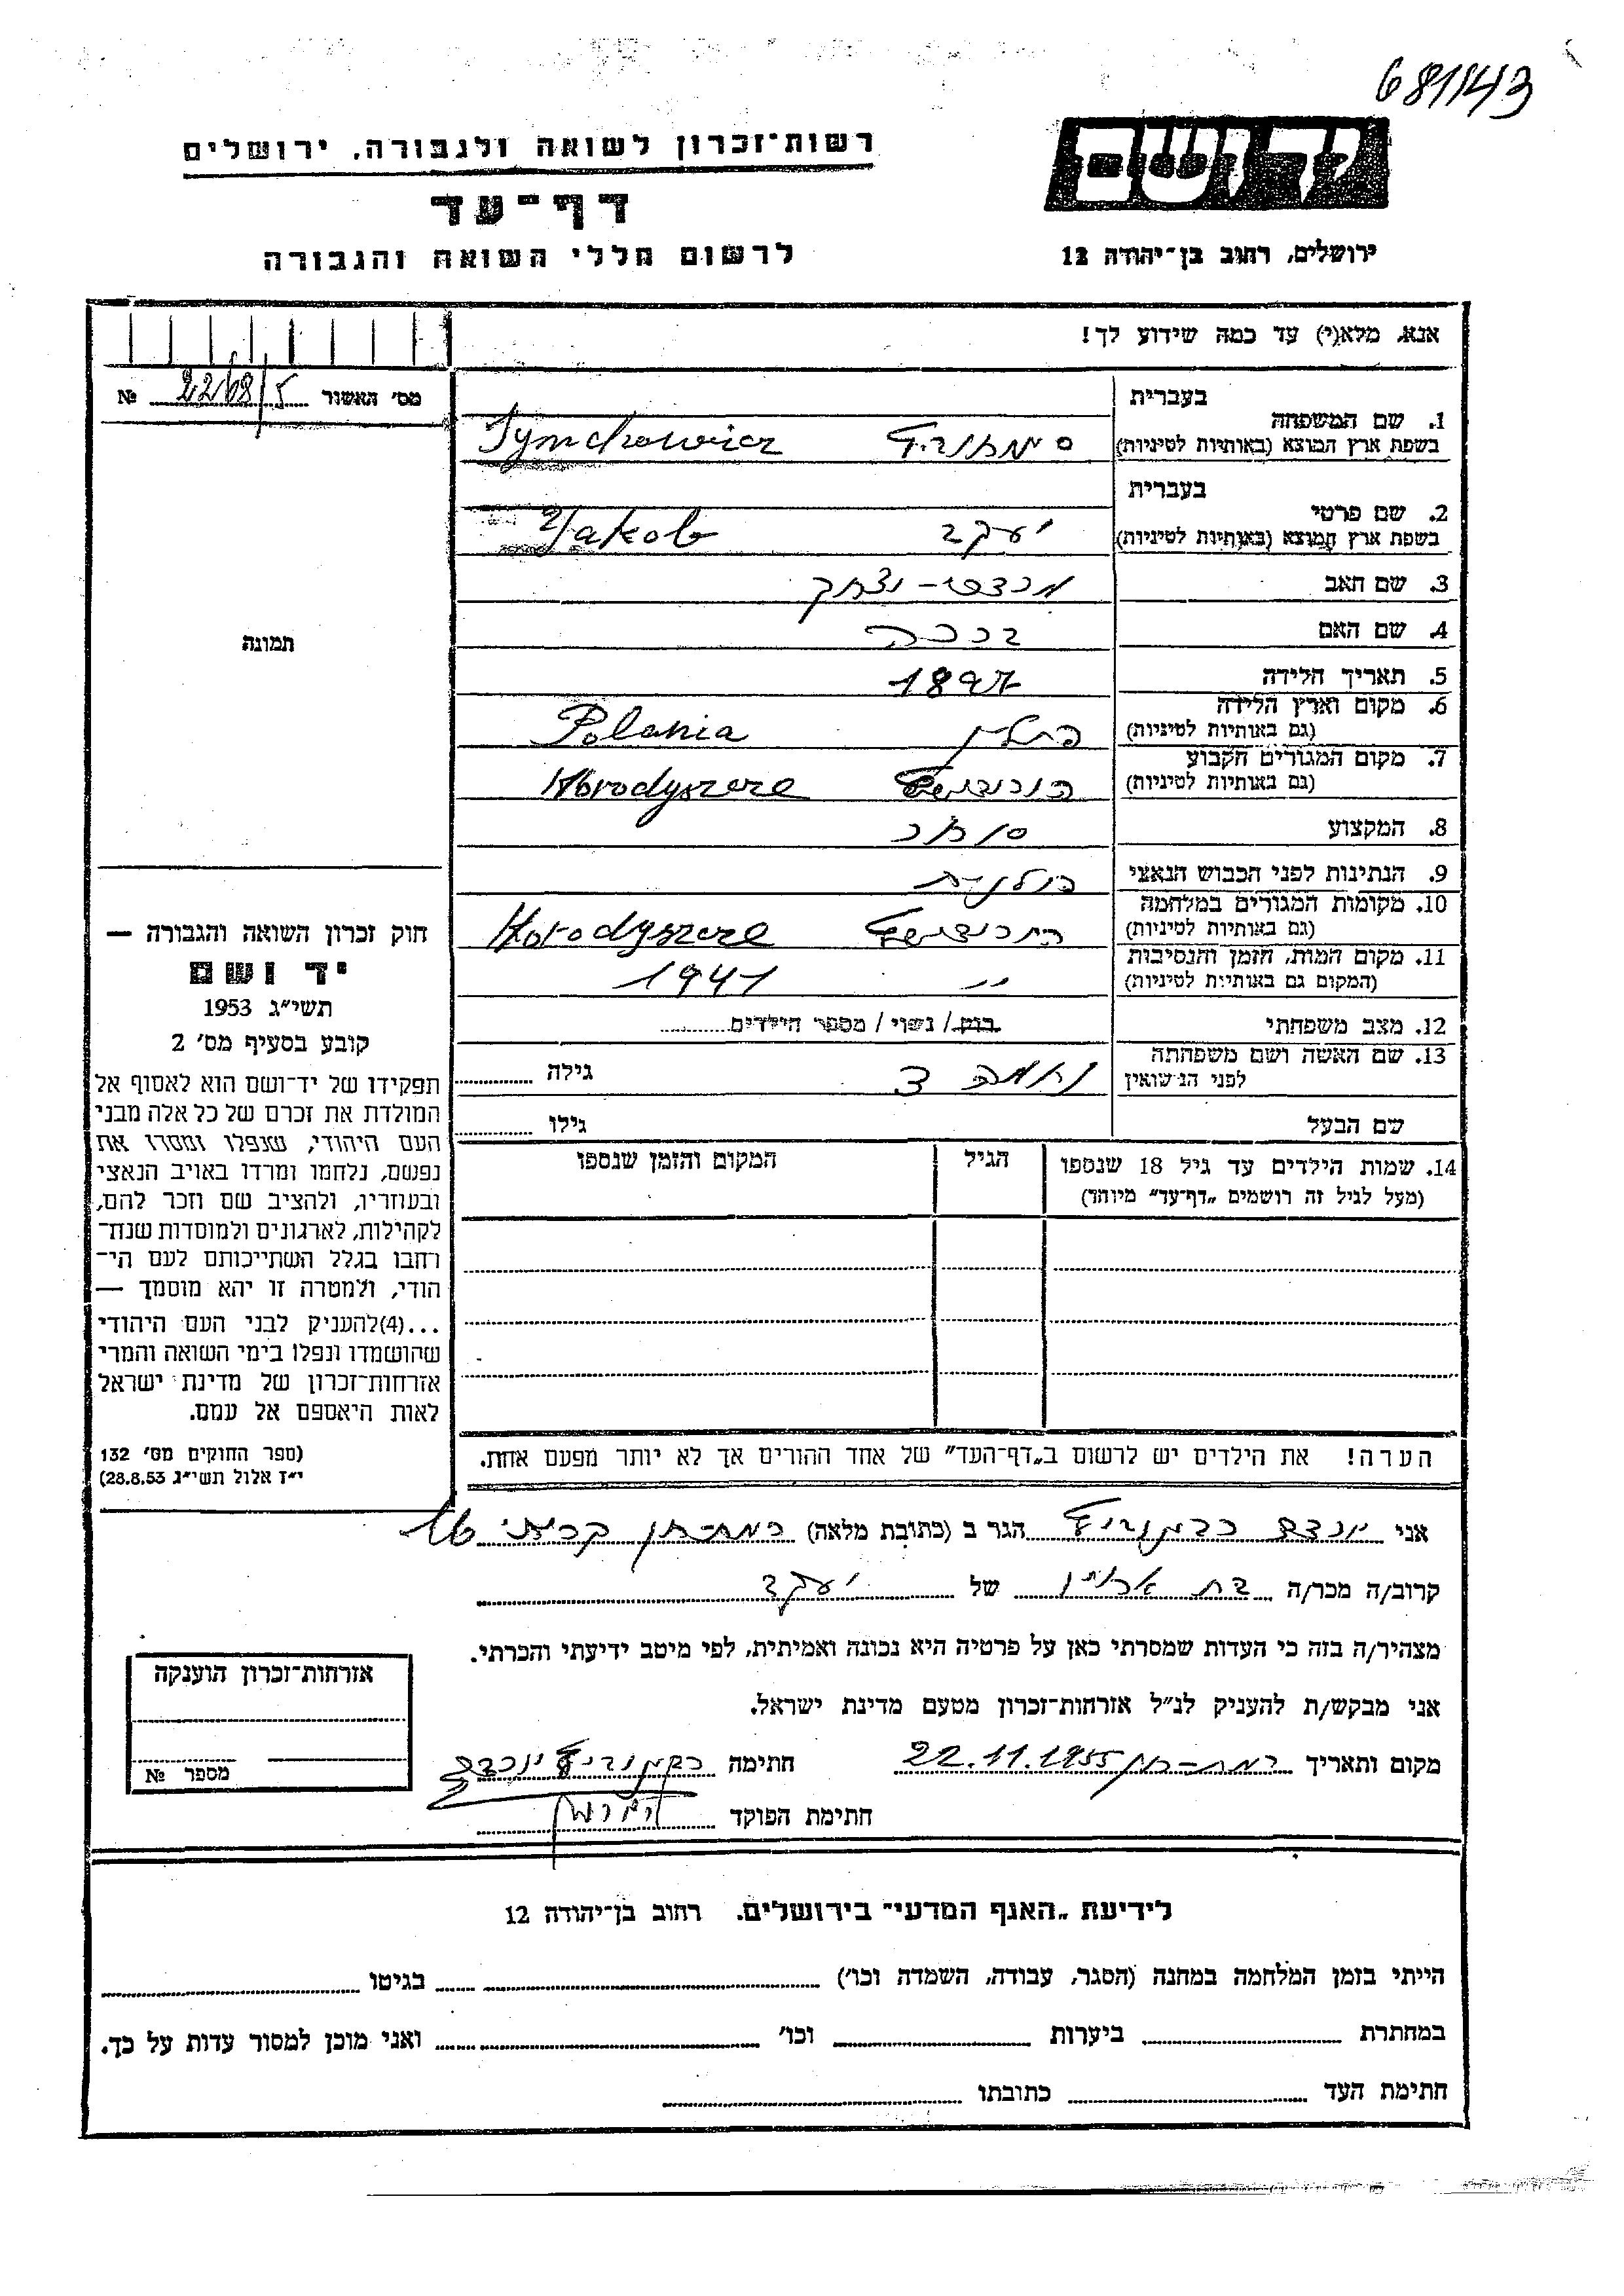 681143
רשות־זכרון לשואה ולגבורה, ירושלים
יד ושם
דף־עד
לרשום חללי השואה והגבורה
ירושלים, רחוב בן־יהודה 12
אנא, מלא(י) עד כמה שידוע לך!
מס' האשור 2268/5 №
בעברית
1. שם המשפחה
בשפת ארץ המוצא (באותיות לטיניות)
Symchowicz
בעברית
2. שם פרטי
בשפת ארץ המוצא (באותיות לטיניות)
יעקב Yakob
3. שם האב
4. שם האם
תמונה
5. תאריך הלידה 1897
6. מקום וארץ הלידה
(גם באותיות לטיניות)
פולין Polania
7. מקום המגורים הקבוע
(גם באותיות לטיניות)
Horodyszcze
8. המקצוע סוחר
9. הנתינות לפני הכבוש הנאצי פולנית
10. מקומות המגורים במלחמה
(גם באותיות לטיניות)
Horodyszcze
11. מקום המות, הזמן והנסיבות
(המקום גם באותיות לטיניות)
" 1941
12. מצב משפחתי רווק / נשוי / מספר הילדים
13. שם האשה ושם משפחתה
לפני הנישואין
נחמה גילה
שם הבעל גילו
14. שמות הילדים עד גיל 18 שנספו
(מעל לגיל זה רושמים „דף־עד" מיוחד)
הגיל
המקום והזמן שנספו
חוק זכרון השואה והגבורה —
יד ושם
תשי"ג 1953
קובע בסעיף מס' 2
תפקידו של יד־ושם הוא לאסוף אל
המולדת את זכרם של כל אלה מבני
העם היהודי, שנפלו ומסרו את
נפשם, נלחמו ומרדו באויב הנאצי
ובעוזריו, ולהציב שם וזכר להם,
לקהילות, לארגונים ולמוסדות שנח־
רבו בגלל השתייכותם לעם הי־
הודי, ולמטרה זו יהא מוסמך —
...(4)להעניק לבני העם היהודי
שהושמדו ונפלו בימי השואה והמרי
אזרחות־זכרון של מדינת ישראל
לאות היאספם אל עמם.
(ספר החוקים מס' 132
י"ז אלול תשי"ג 28.8.53)
הערה! את הילדים יש לרשום ב„דף־העד" של אחד ההורים אך לא יותר מפעם אחת.
אני הגר ב (כתובת מלאה) רמת-גן
קרוב/ה מכר/ה של יעקב
מצהיר/ה בזה כי העדות שמסרתי כאן על פרטיה היא נכונה ואמיתית, לפי מיטב ידיעתי והכרתי.
אני מבקש/ת להעניק לנ"ל אזרחות־זכרון מטעם מדינת ישראל.
מקום ותאריך רמת-גן 22.11.1955 חתימה
חתימת הפוקד
אזרחות־זכרון הוענקה
מספר №
לידיעת „האגף המדעי" בירושלים. רחוב בן־יהודה 12
הייתי בזמן המלחמה במחנה (הסגר, עבודה, השמדה וכו') בגיטו
במחתרת ביערות וכו' ואני מוכן למסור עדות על כך.
חתימת העד כתובתו